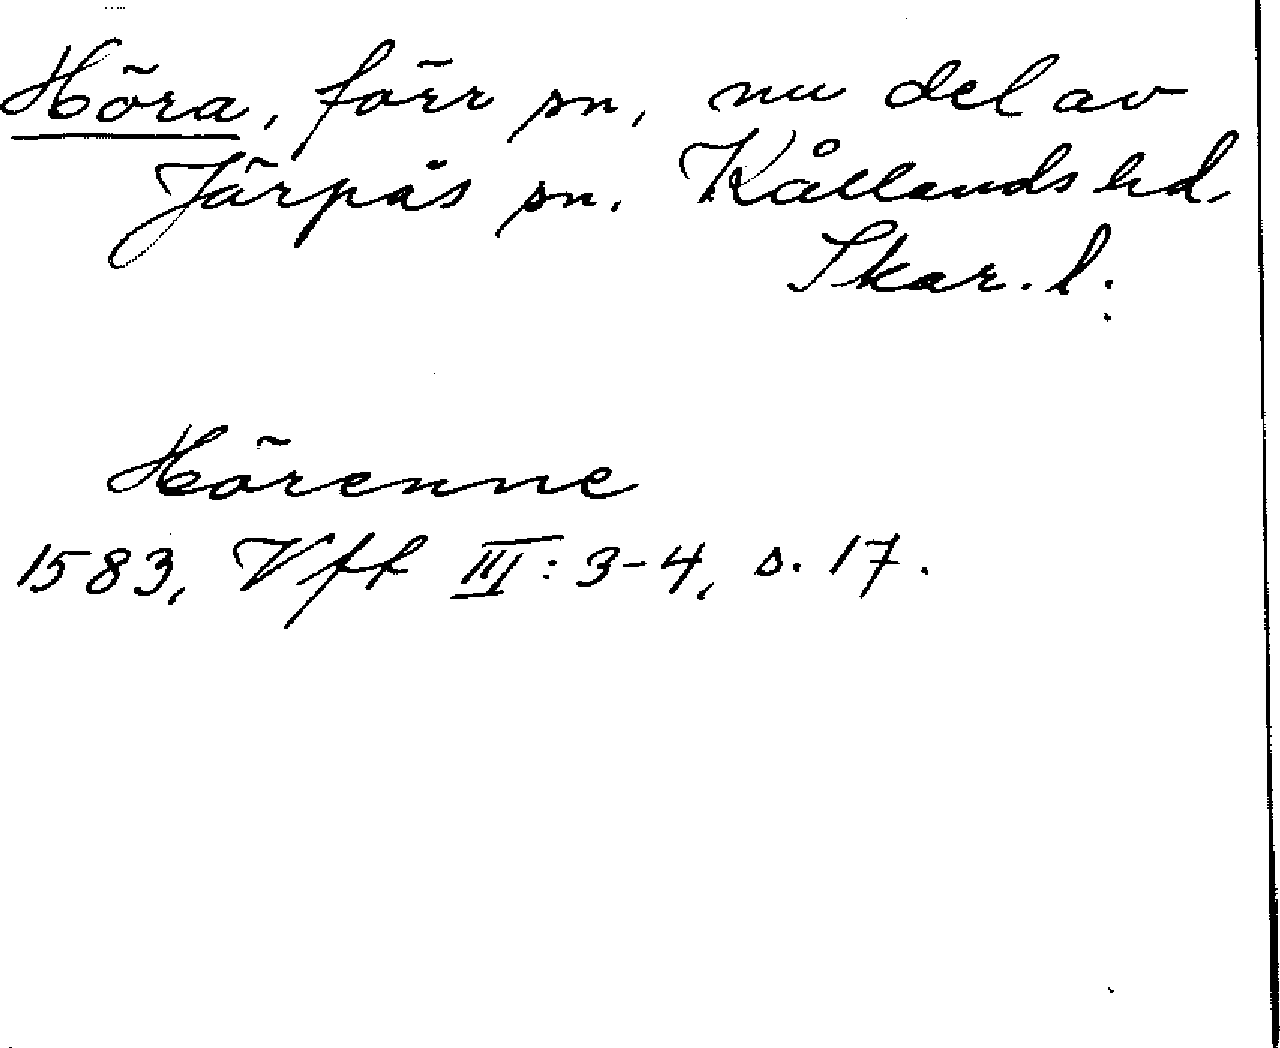 Höra, förr sn, nu del av
Järpås sn. Kållands hd,
Skar. l.
Hörenne
1583, Vff III: 3-4, s. 17.